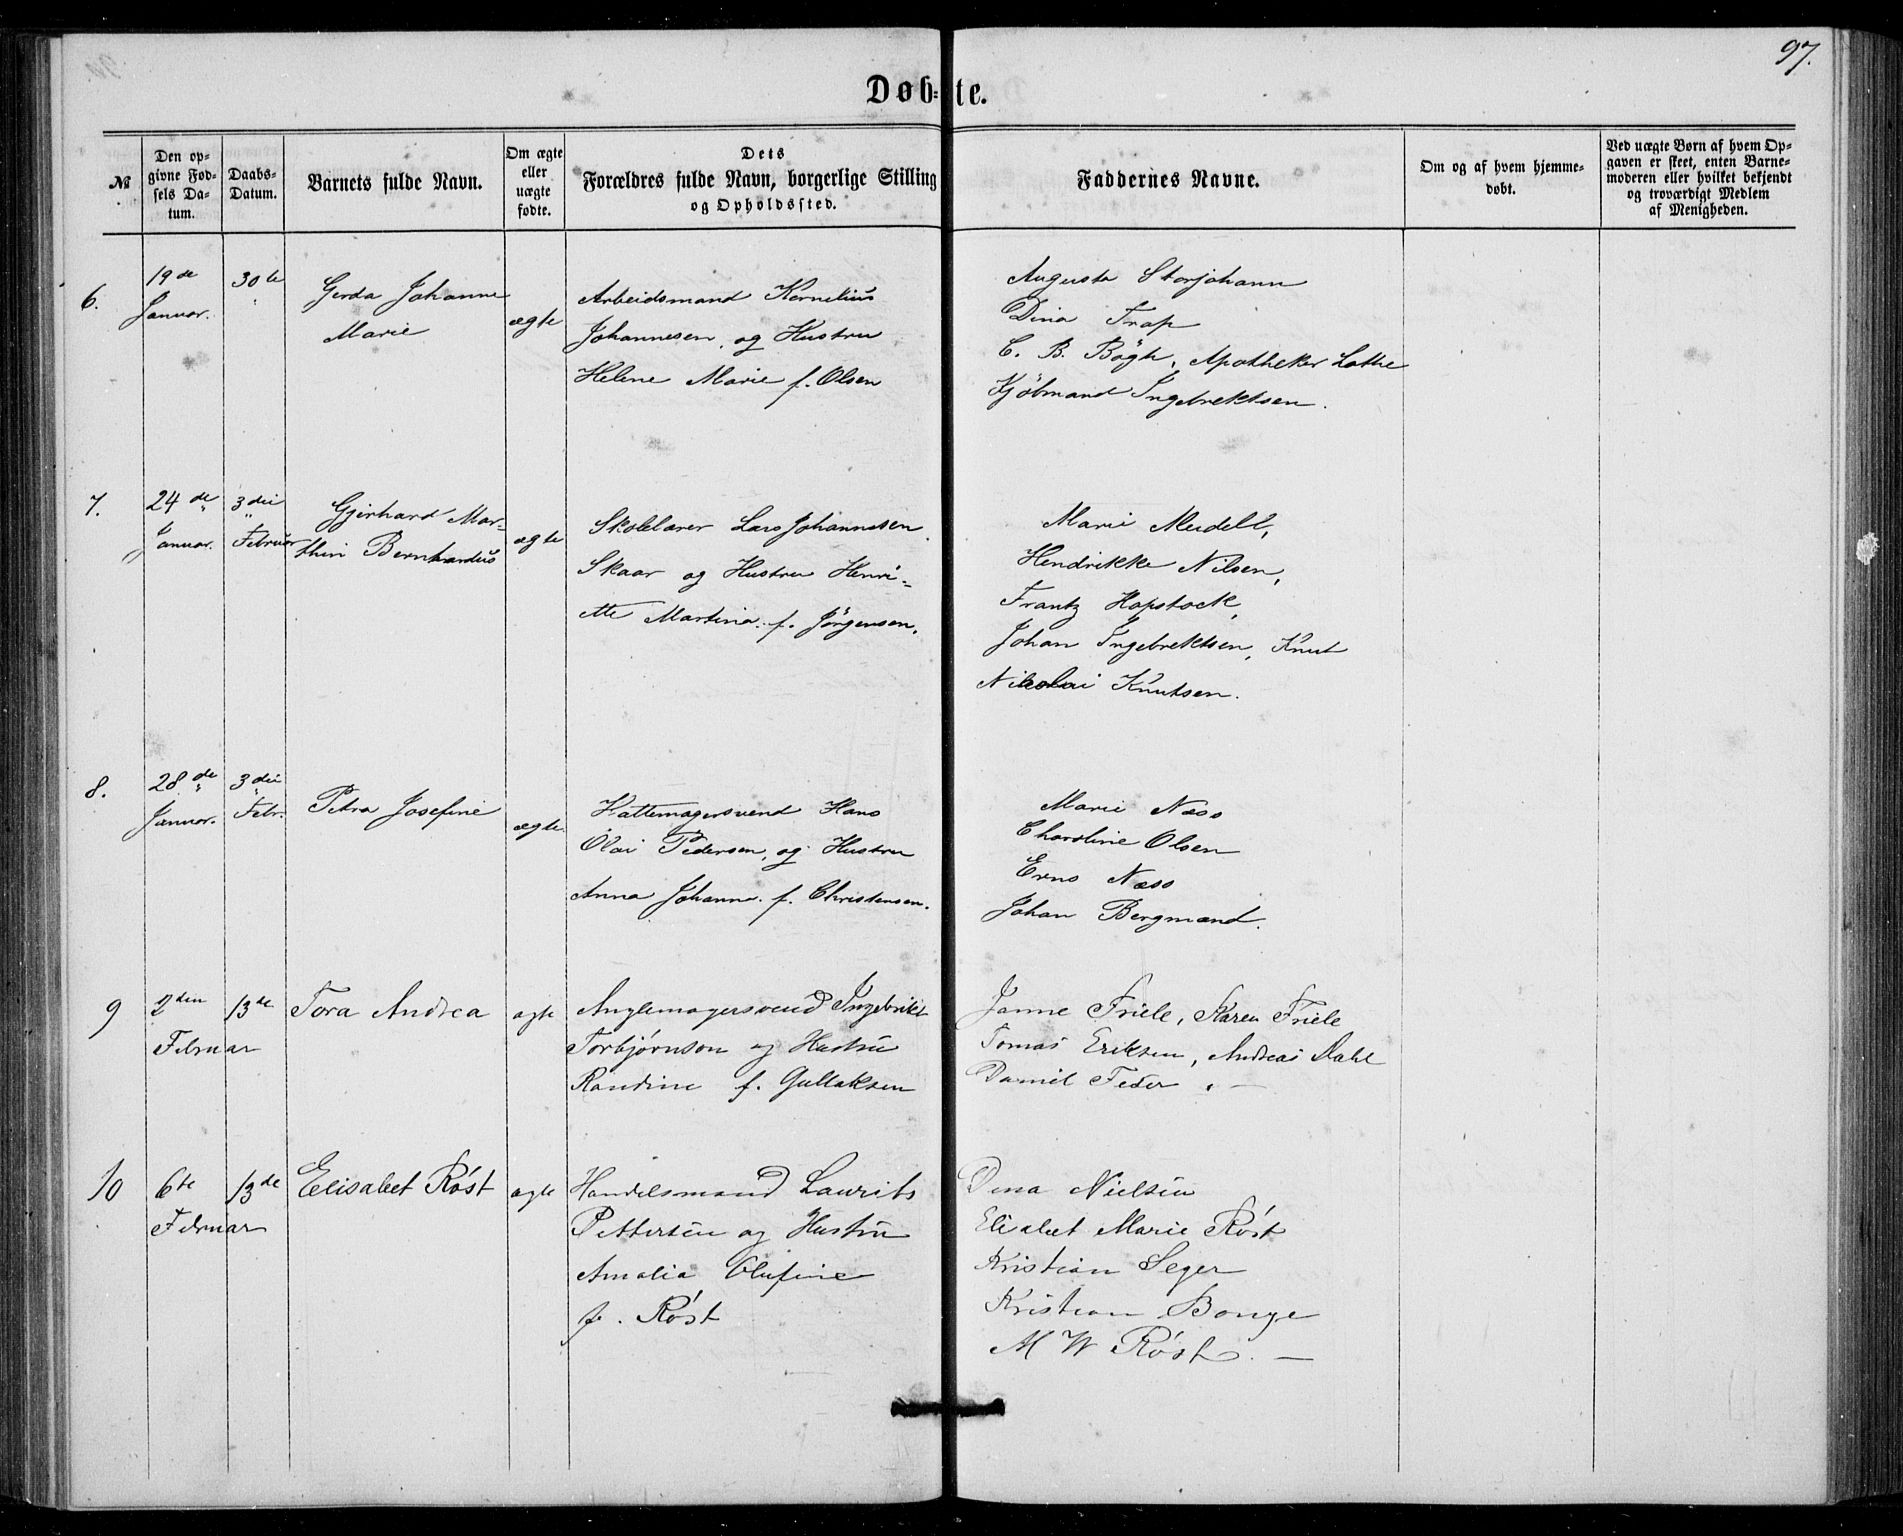 97.
Døb-te.
№
Den op-
givne Fød-
sels Da-
tum.
Daabs-
Datum.
Barnets fulde Navn.
Om ægte
eller
uægte
fødte.
Dets
Forældres fulde Navn, borgerlige Stilling
og Opholdssted.
Faddernes Navne.
Om og af hvem hjemme-
døbt.
Ved uægte Børn af hvem Op-
gaven er skeet, enten Barne-
moderen eller hvilket bekjendt
og troværdigt Medlem
af Menigheden.
6.
19de
Januar.
30te
Gerda Johanne
Marie
ægte
Arbeidsmand Kornelius
Johannesen, og Hustru
Helene Marie f. Olsen
Augusta Storjohann
Dina Trap
C. B. Bøgh, Apotheker Lothe
Kjøbmand Ingebrektsen.
7.
24de
Januar.
3die
Februar
Gjerhard Mar-
thin Bernhardus
ægte
Skolelærer Lars Johannesen
Skaar og Hustru Henri-
ette Martina f. Jørgensen.
Marie Meidell,
Hendrikke Nilsen,
Frantz Hopstock,
Johan Ingebrektsen, Knut
Nikolai Knutsen.
8.
28de
Januar.
3die
Febr.
Petra Josefine
ægte
Hattemagersvend Hans
Olai Pedersen, og Hustru
Anna Johanna f. Christensen.
Marie Næss
Charoline Olsen
Erns Næss
Johan Bergmand.
9
2den
Februar
13de
Tora Andrea
ægte
Anglemagersvend Ingebrikt
Torbjørnson og Hustru
Randine f. Gullaksen
Janne Friele, Karen Friele
Tomas Eriksen, Andreas Dahl
Daniel Feder. —
10
6te
Februar
13de
Elisabet Røst
ægte
Handelsmand Laurits
Pettersen og Hustru
Amalia Olufine
f. Røst
Dina Nielsen
Elisabet Marie Røst
Kristian Seger
Kristian Bonge
M W Røst. —